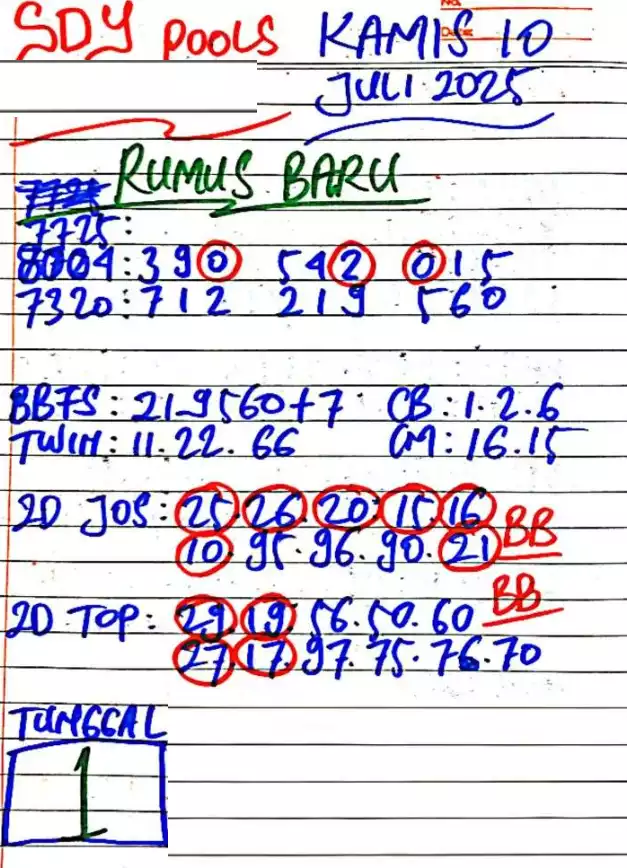 SDY POOLS KAMIS 10
JULI 2025
RUMUS BARU
7725:
8004:390 542 015
7320:712 219 560
BBFS:219560+7 CB:1.2.6
TWIN:11.22.66 CM:16.15
2D JOS:25.26.20.15.16 BB
10.95.96.90.21
2D TOP:29.19.56.50.60 BB
27.17.97.75.76.70
TUNGGAL
1